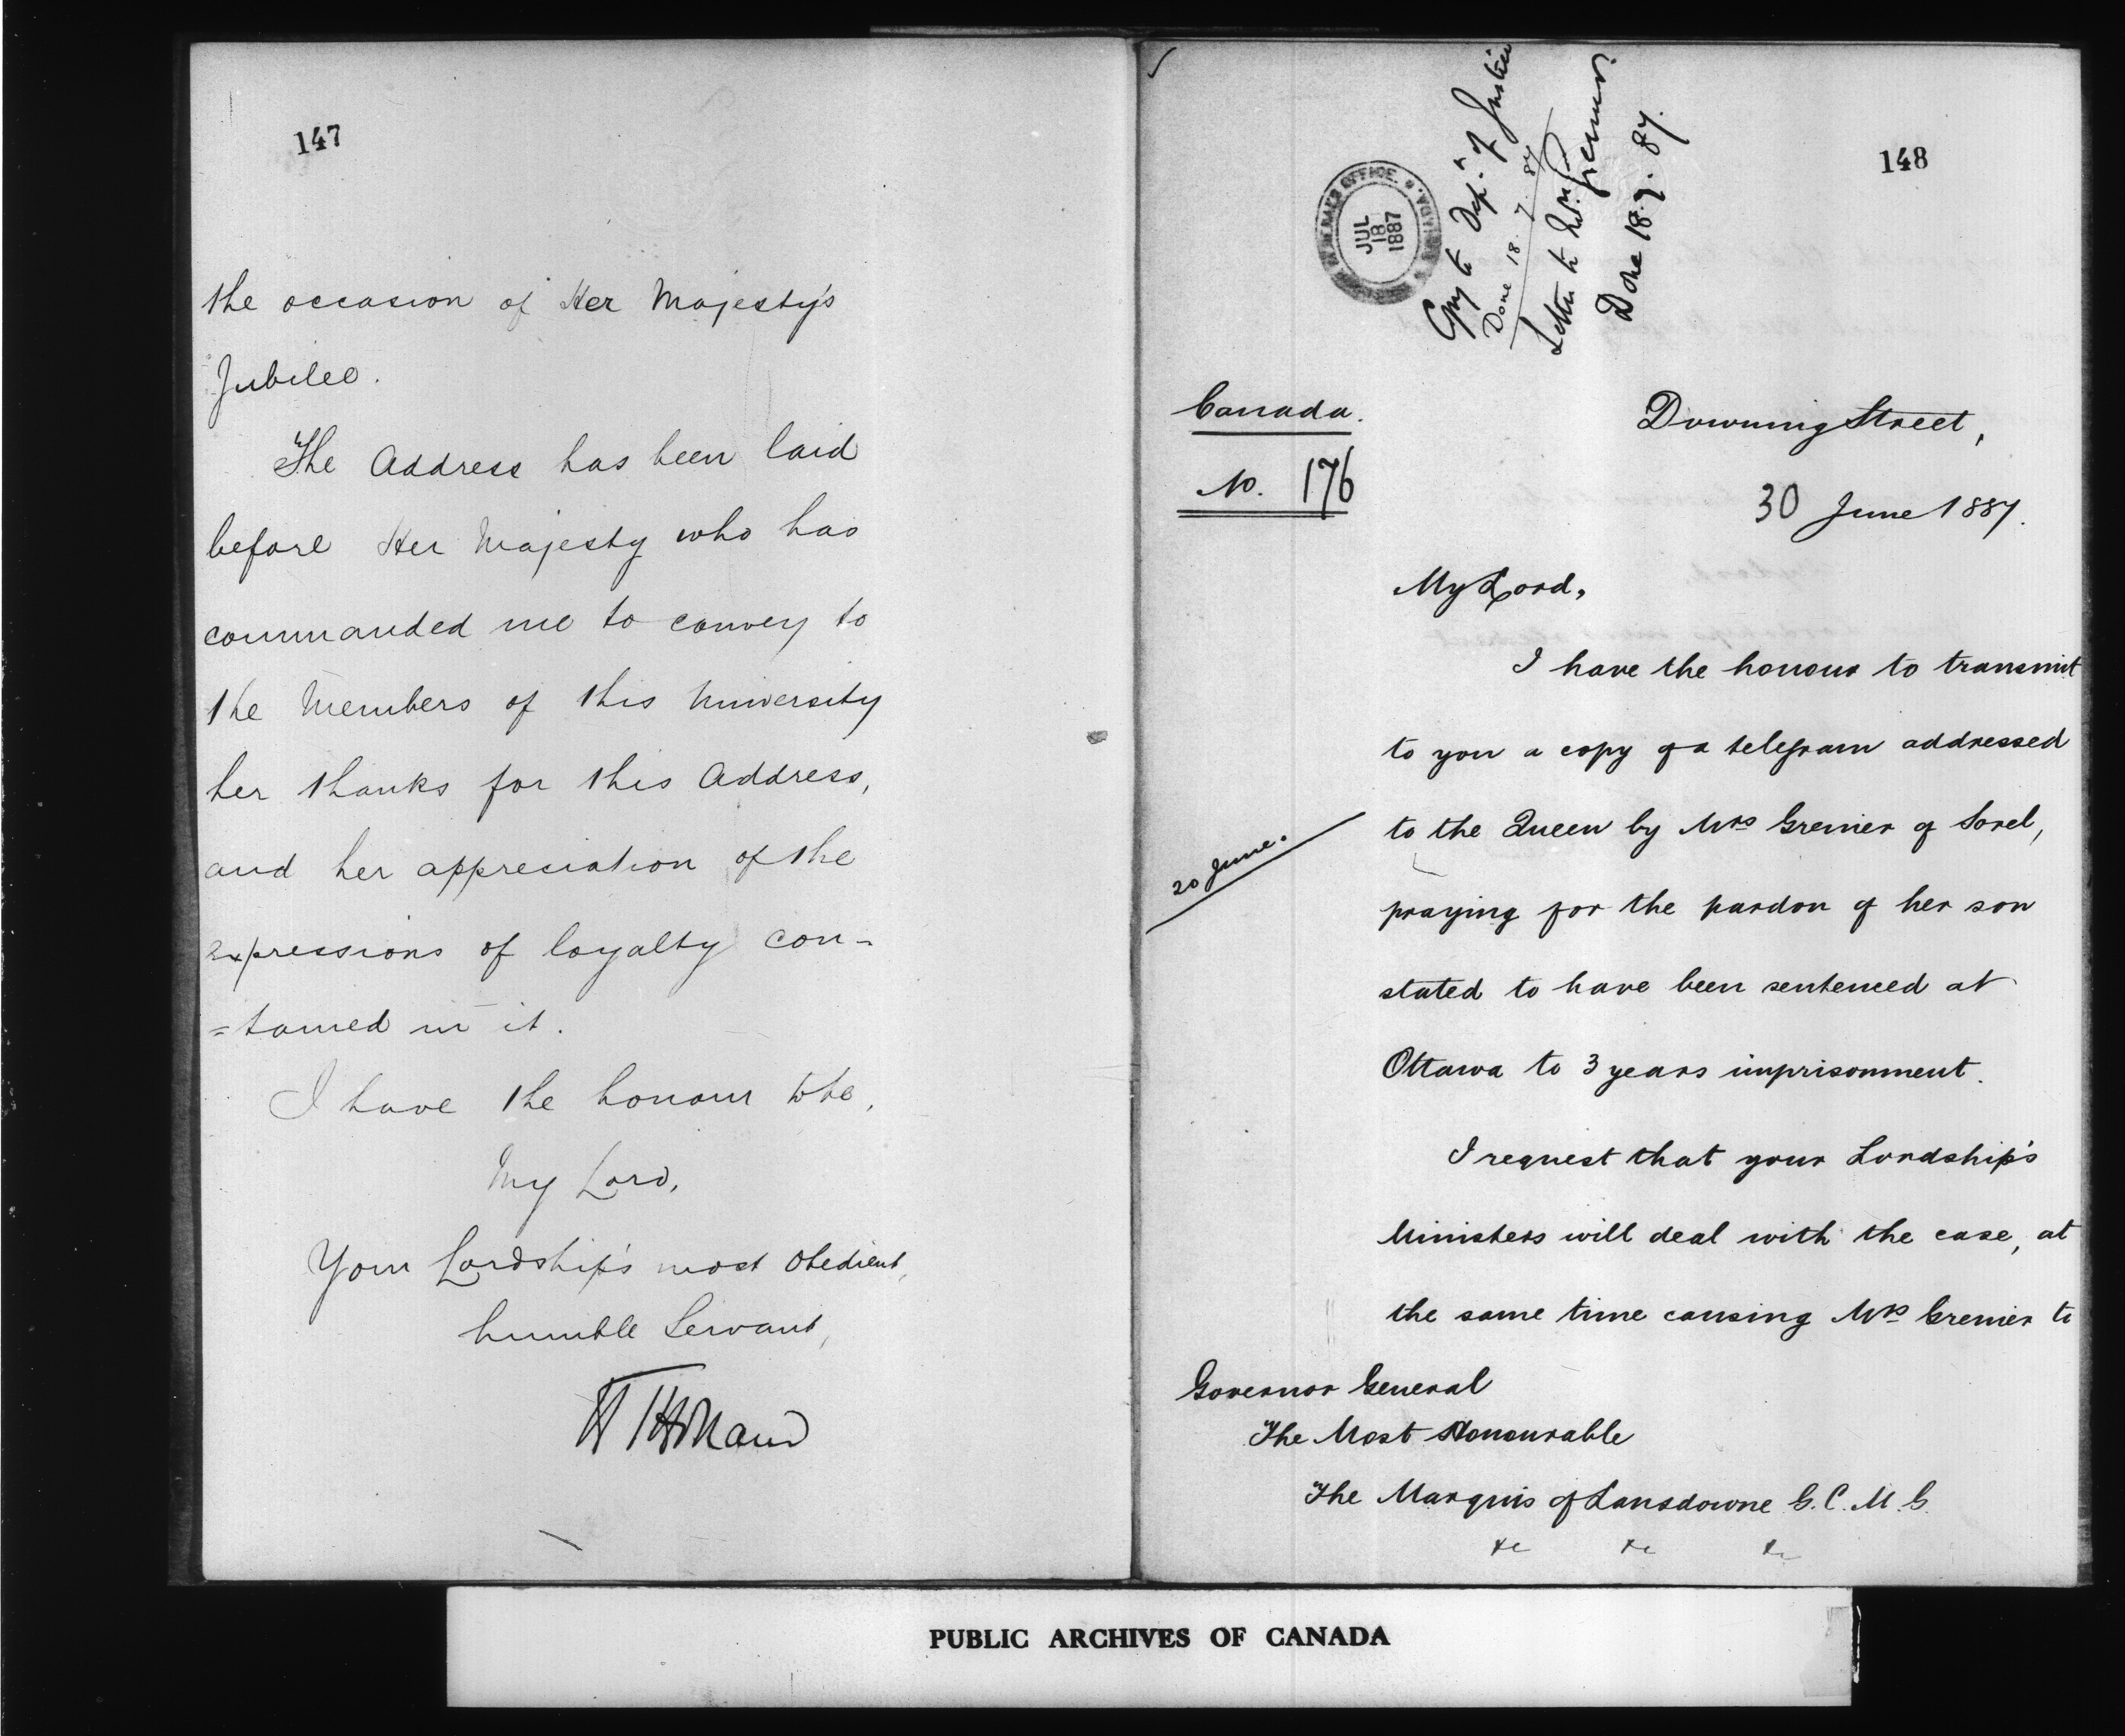 147
the occasion of Her Majesty's
Jubilee.
The Address has been laid
before Her Majesty who has
commanded me to convey to
the Members of this University
her thanks for this Address,
and her appreciation of the
expressions of loyalty con-
=tained in it.
I have the honour to be,
My Lord,
Your Lordship's most obedient,
humble Servant,
H T Holland
148
JUL
18
1887
Copy to Dept. of Justice
Done 18. 7. 87
Letter to Mrs. Grenier.
Done 18.7.87.
Canada.
No. 176
Downing Street,
30 June 1887.
My Lord,
I have the honour to transmit
to you a copy of a telegram addressed
to the Queen by Mrs Grenier of Sorel,
20 June.
praying for the pardon of her son
stated to have been sentenced at
Ottawa to 3 years imprisonment.
I request that your Lordship's
Ministers will deal with the case, at
the same time causing Mrs Grenier to
Governor General
The Most Honourable
The Marquis of Lansdowne G.C.M.G.
&c &c &c
PUBLIC ARCHIVES OF CANADA